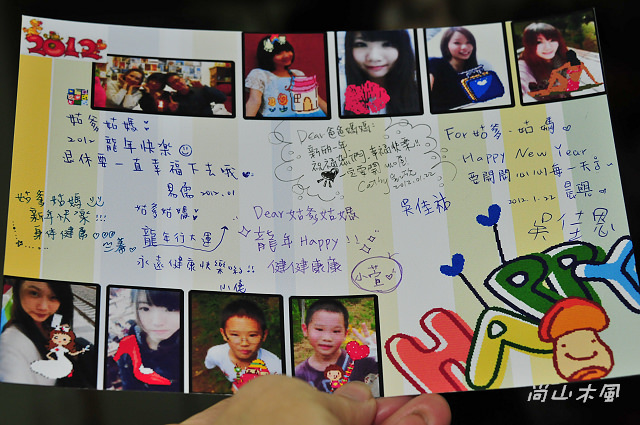 2012
姑爹姑媽
2012 龍年快樂
退休要一直幸福下去哦
易儒 2012.01
Dear 爸爸媽媽:
新的一年
祝福你們幸福快樂!!
一定要開心喔
Cathy
2012.01.22
For 姑爹、姑媽
Happy New Year
要開開心心每一天
2012.1.22
吳佳祐
吳佳恩
姑爹姑媽
新年快樂!!!
身体健康
姑爹姑媽
龍年行大運
永遠健康快樂喲!!
小倩
Dear 姑爹姑媽
龍年 Happy!!
健健康康
小萱
HAPPY
尚山木風